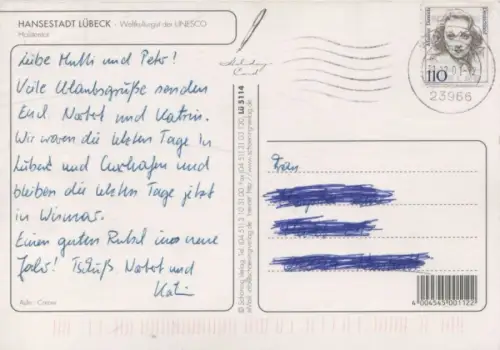 HANSESTADT LÜBECK - Weltkulturgut der UNESCO
Holstentor
Liebe Mutti und Peter!
Viele Urlaubsgrüße senden
Euch Norbert und Katrin.
Wir waren die letzten Tage in
Lübeck und Cuxhafen und
bleiben die letzten Tage jetzt
in Wismar.
Einen guten Rutsch ins neue
Jahr! Tschüß Norbert und
Katrin
Aufn.: Cramer
Lü 5114
© Schöning Verlag
110
23966
Frau
4 004545 001122